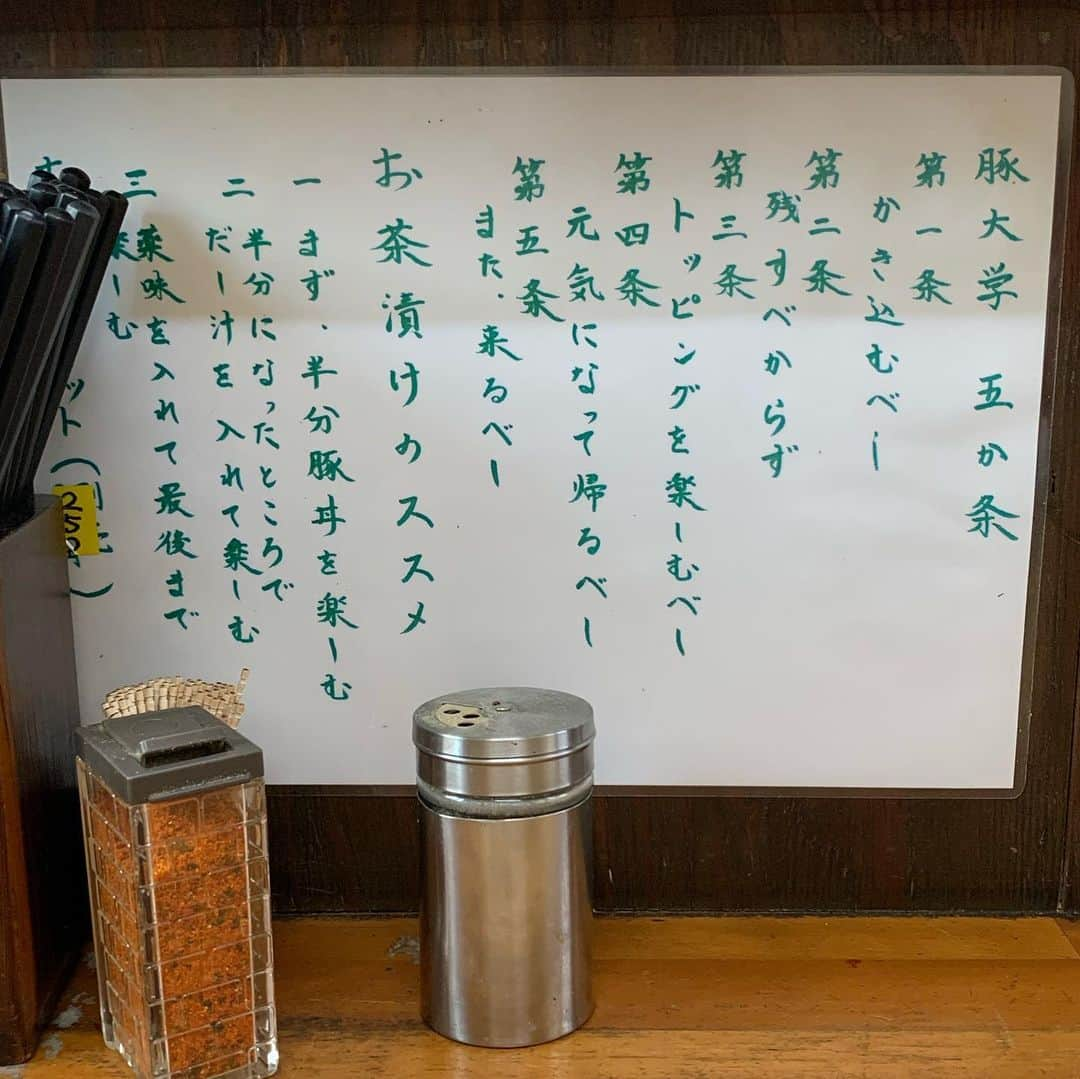 豚大学 五か条
第一条
かき込むべー
第二条
残すべからず
第三条
トッピングを楽ーむべー
第四条
元気になって帰るべー
第五条
また、来るべー
お茶漬けのススメ
一 まず、半分豚丼を楽ーむ
二 半分になったところで
だー汁を入れて楽ーむ
三 薬味を入れて最後まで
楽ーむ
ット(
250